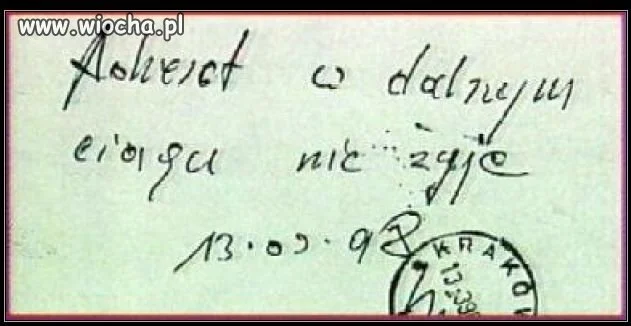 www.wiocha.pl
Adresat w dalnym
ciągu nie żyje
13.09.98
KRAKÓ